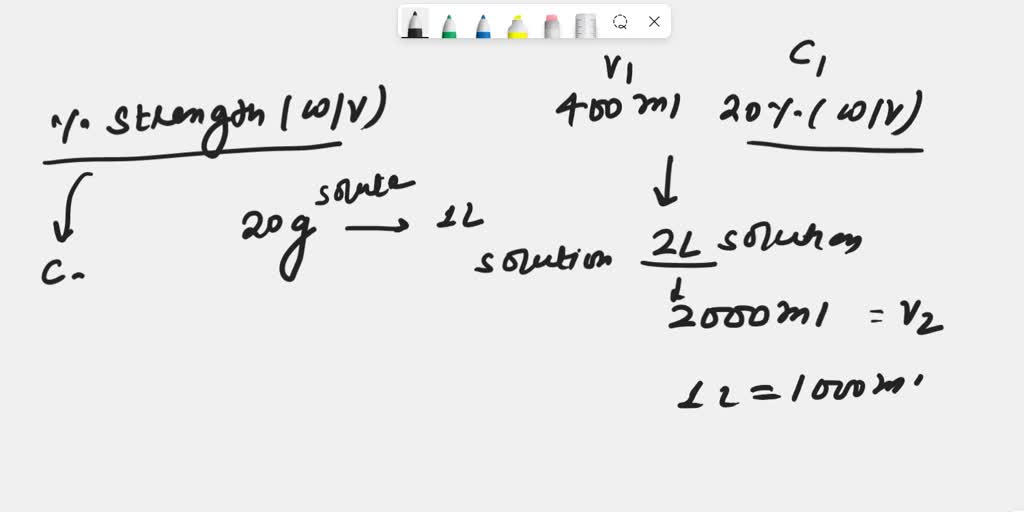 % strength (w/v)
C
20g solute → 1L
solution
V1 C1
400 ml 20%. (w/v)
↓
2L solution
↓
2000 ml = V2
1L = 1000 m